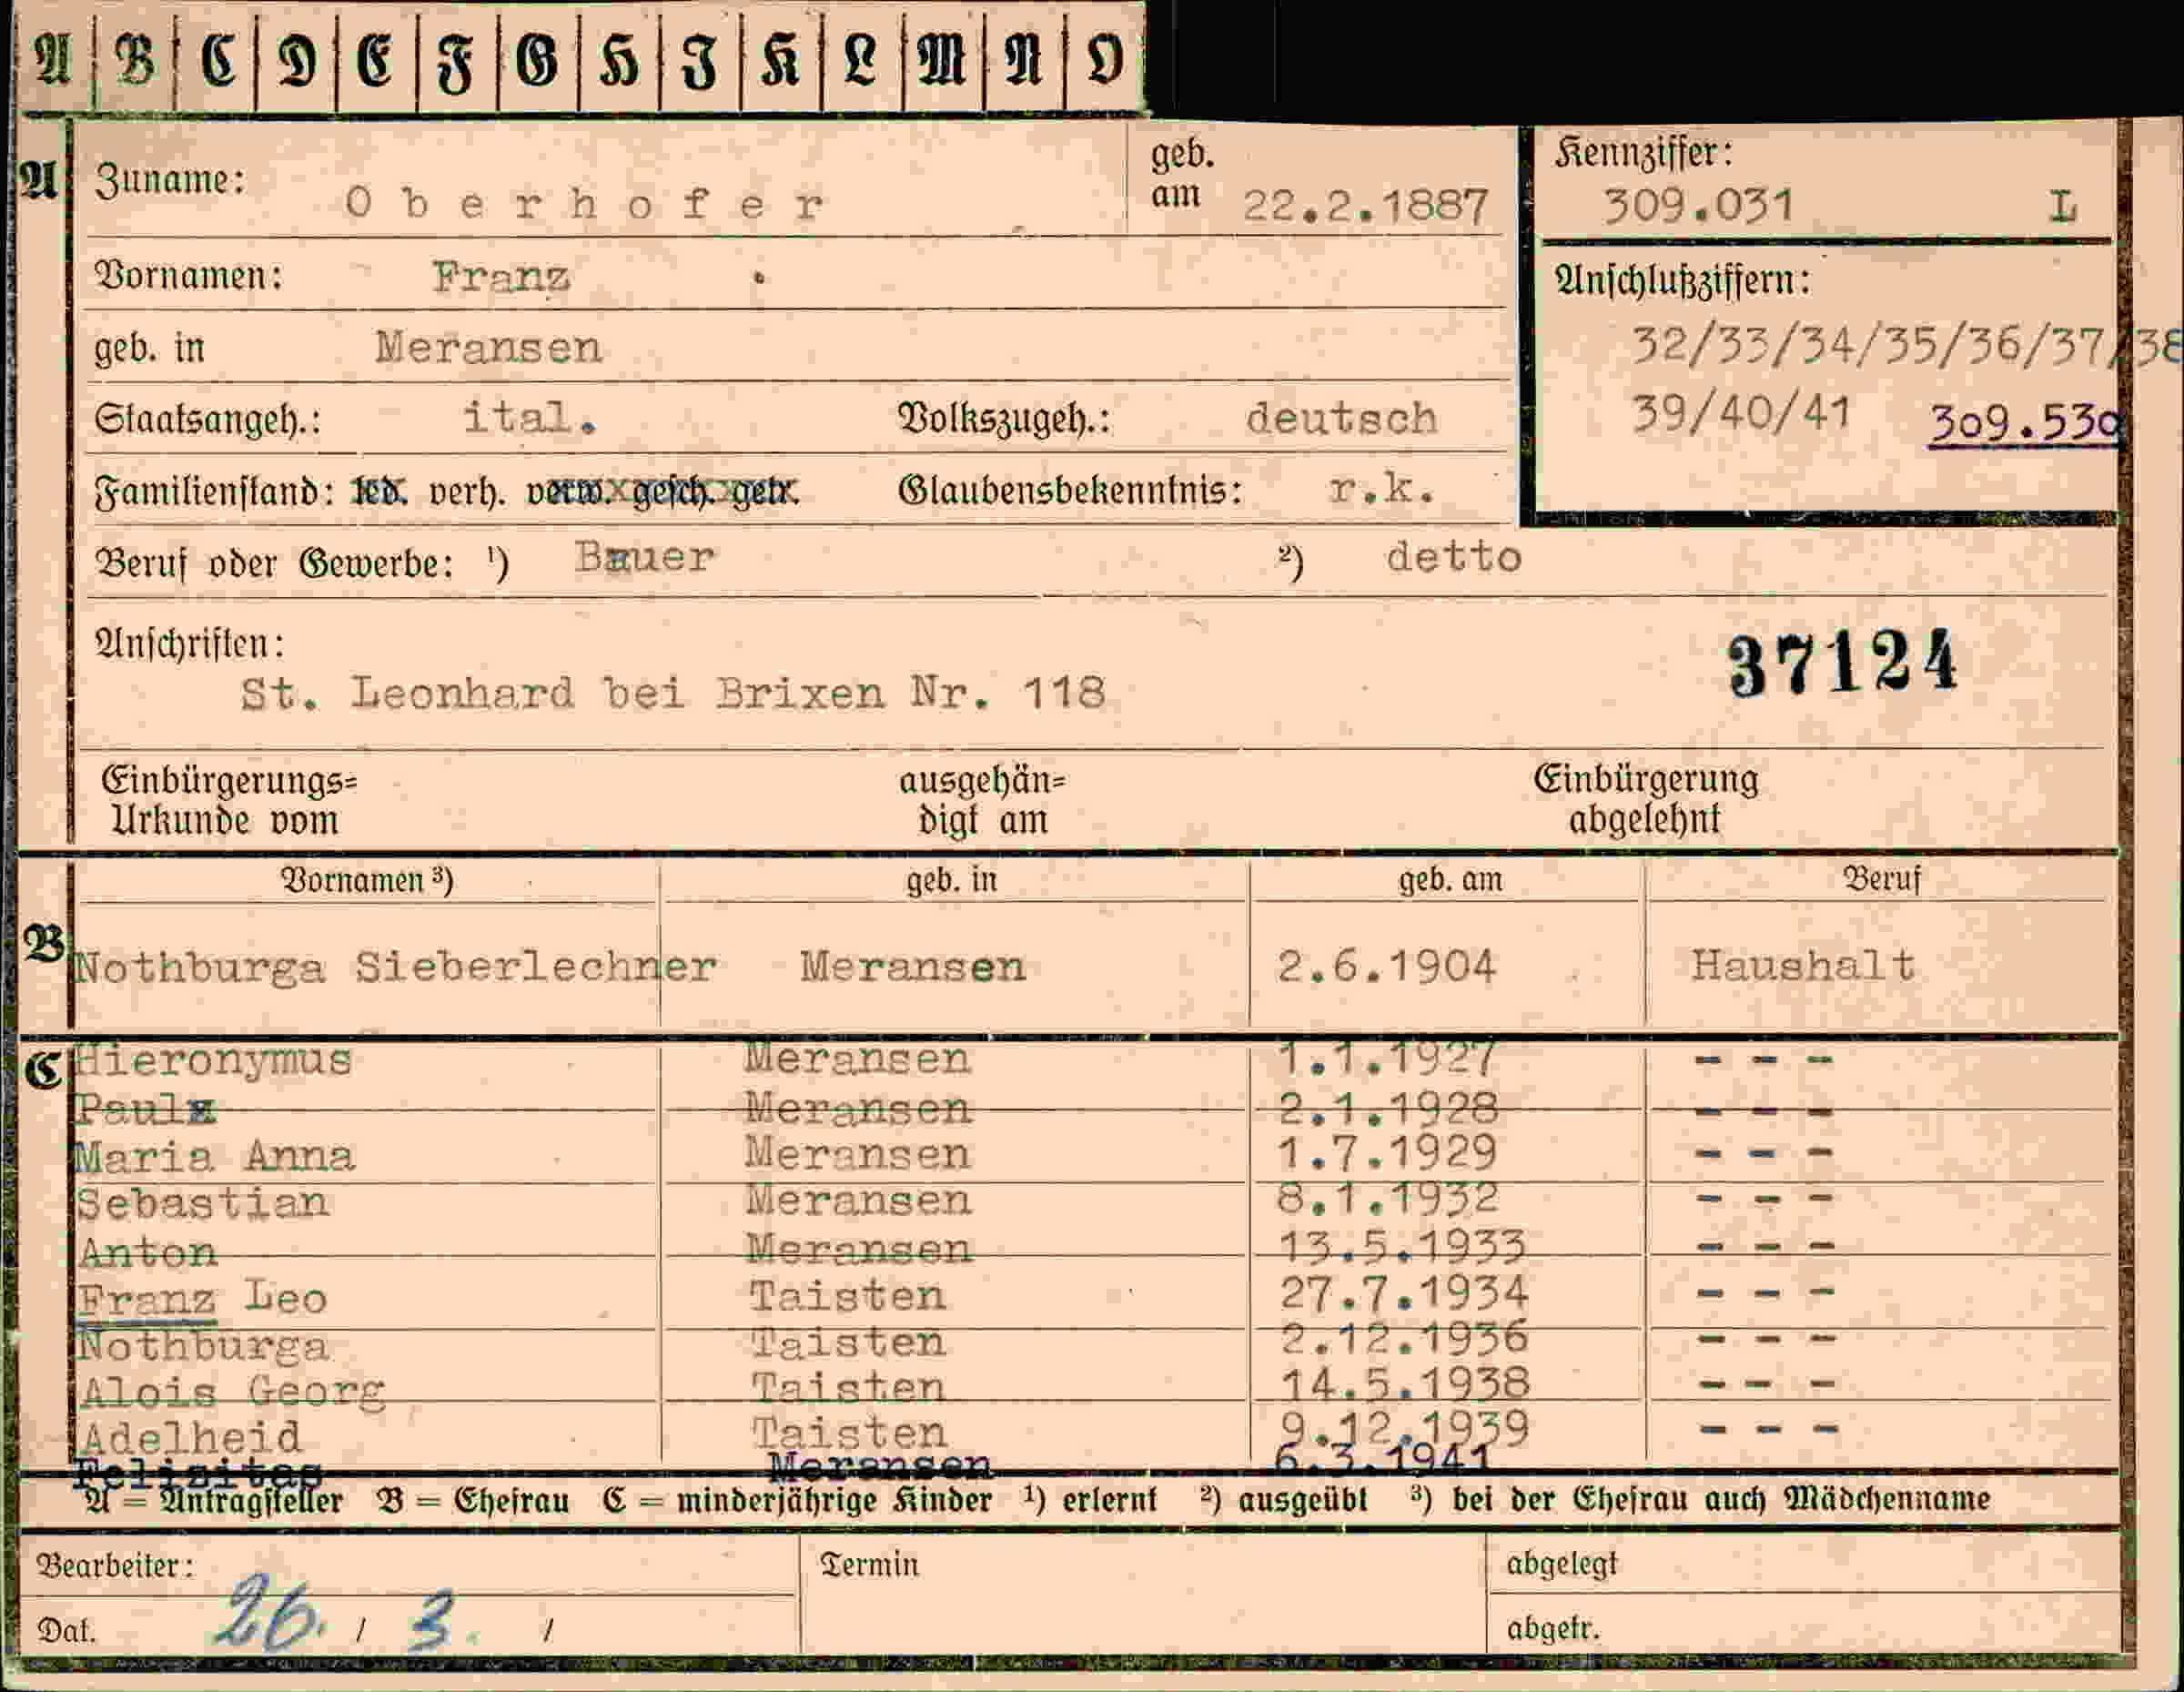 A B C D E F G H I K L M N O
A Zuname: Oberhofer geb. am 22.2.1887 Kennziffer: 309.031 L
Vornamen: Franz
Anschlußziffern:
geb. in Meransen 32/33/34/35/36/37/38
Staatsangeh.: ital. Volkszugeh.: deutsch 39/40/41 309.530
Familienstand: led. verh. verw. gesch. getr. Glaubensbekenntnis: r.k.
Beruf oder Gewerbe: ¹) Bauer ²) detto
Anschriften: 37124
St. Leonhard bei Brixen Nr. 118
Einbürgerungs= ausgehän= Einbürgerung
Urkunde vom digt am abgelehnt
Vornamen ³) geb. in geb. am Beruf
B Nothburga Sieberlechner Meransen 2.6.1904 Haushalt
C Hieronymus Meransen 1.1.1927 - - -
Paul Meransen 2.1.1928 - - -
Maria Anna Meransen 1.7.1929 - - -
Sebastian Meransen 8.1.1932 - - -
Anton Meransen 13.5.1933 - - -
Franz Leo Taisten 27.7.1934 - - -
Nothburga Taisten 2.12.1936 - - -
Alois Georg Taisten 14.5.1938 - - -
Adelheid Taisten 9.12.1939 - - -
Felizitas Meransen 6.3.1941
A = Antragsteller B = Ehefrau C = minderjährige Kinder ¹) erlernt ²) ausgeübt ³) bei der Ehefrau auch Mädchenname
Bearbeiter: Termin abgelegt
Dat. 26. / 3. / abgetr.